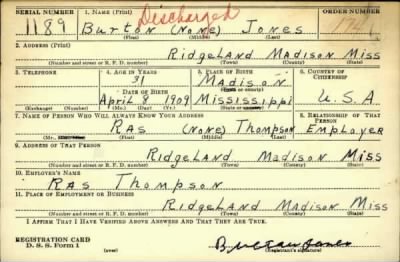 SERIAL NUMBER 1. NAME (Print) ORDER NUMBER
Discharged
1189 Burton (None) Jones
(First) (Middle) (Last)
2. ADDRESS (Print)
Ridgeland Madison Miss
(Number and street or R. F. D. number) (Town) (County) (State)
3. TELEPHONE 4. AGE IN YEARS 5. PLACE OF BIRTH 6. COUNTRY OF CITIZENSHIP
31 Madison
DATE OF BIRTH (Town or county)
April 8 1909 Mississippi U.S.A
(Exchange) (Number) (Mo.) (Day) (Yr.) (State or country)
7. NAME OF PERSON WHO WILL ALWAYS KNOW YOUR ADDRESS 8. RELATIONSHIP OF THAT PERSON
Ras (None) Thompson Employer
(First) (Middle) (Last)
9. ADDRESS OF THAT PERSON
Ridgeland Madison Miss
(Number and street or R. F. D. number) (Town) (County) (State)
10. EMPLOYER'S NAME
Ras Thompson
11. PLACE OF EMPLOYMENT OR BUSINESS
Ridgeland Madison Miss
(Number and street or R. F. D. number) (Town) (County) (State)
I AFFIRM THAT I HAVE VERIFIED ABOVE ANSWERS AND THAT THEY ARE TRUE.
REGISTRATION CARD
D. S. S. Form 1 (over) (Registrant's signature)